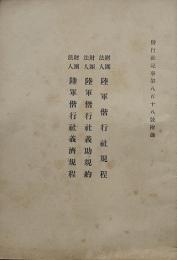 偕行社記事第八百十八號附録
財團法人 陸軍偕行社規程
財團法人 陸軍偕行社義助規約
財團法人 陸軍偕行社義濟規程